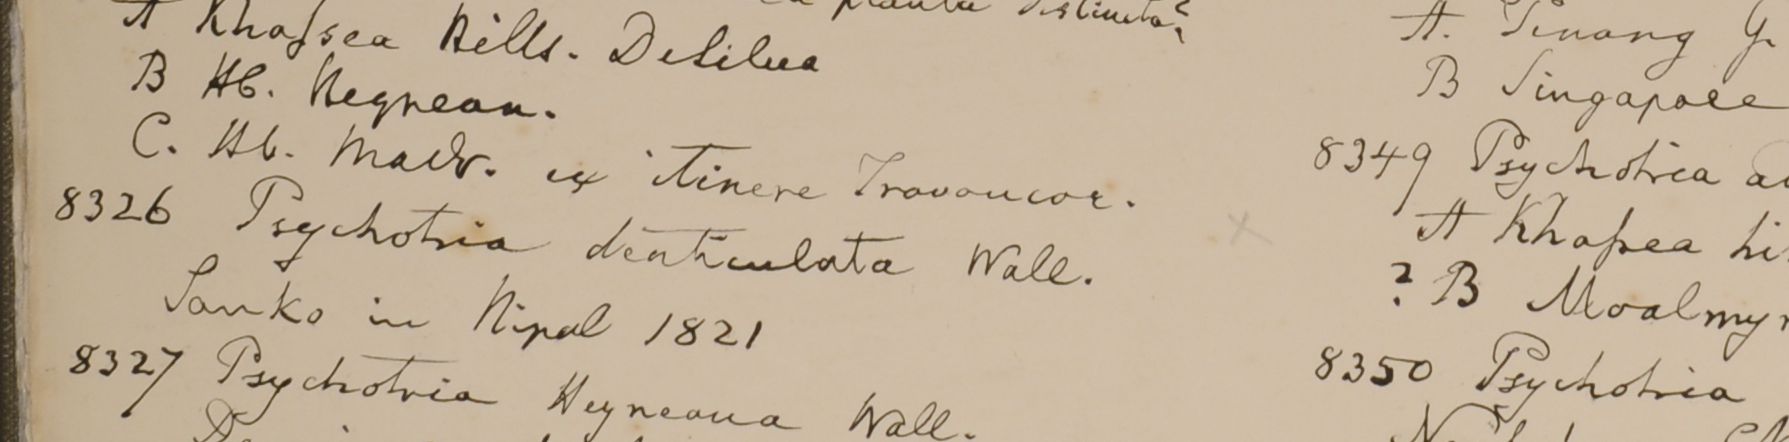 planta distincta?
A Khaſsea Hills. DeSilva
B Hb. Heynean.
C. Hb. Madr. ex itinere Travancor.
8326 Psychotria denticulata Wall.
Sanko in Nipal 1821
8327 Psychotria Heyneana Wall.
A. Pinang
B Singapore
8349 Psychotria
A Khaſsea hi
? B Moalmy
8350 Psychotria